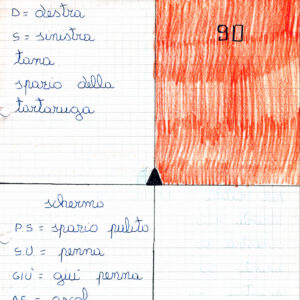 D = destra
S = sinistra
tana
spazio della
tartaruga
90
schermo
PS = spazio pulito
SU = penna
GIÙ = giù penna